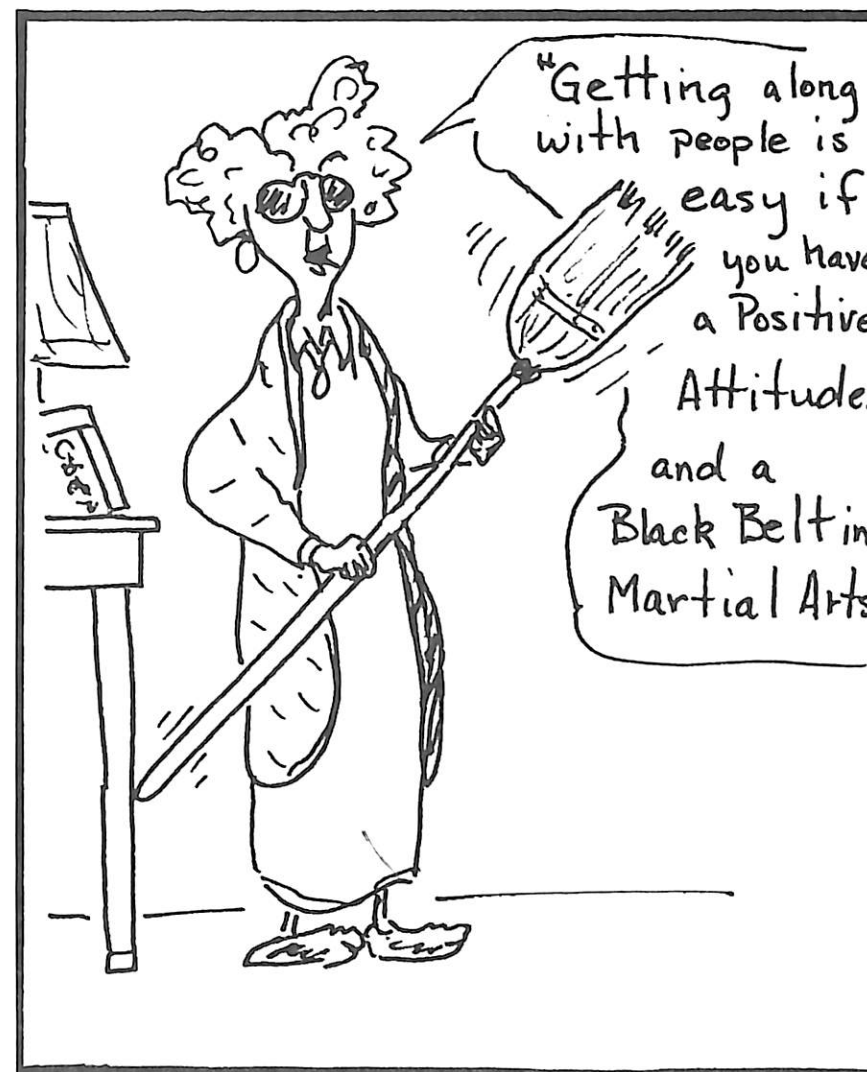 "Getting along
with people is
easy if
you have
a Positive
Attitude
and a
Black Belt in
Martial Arts